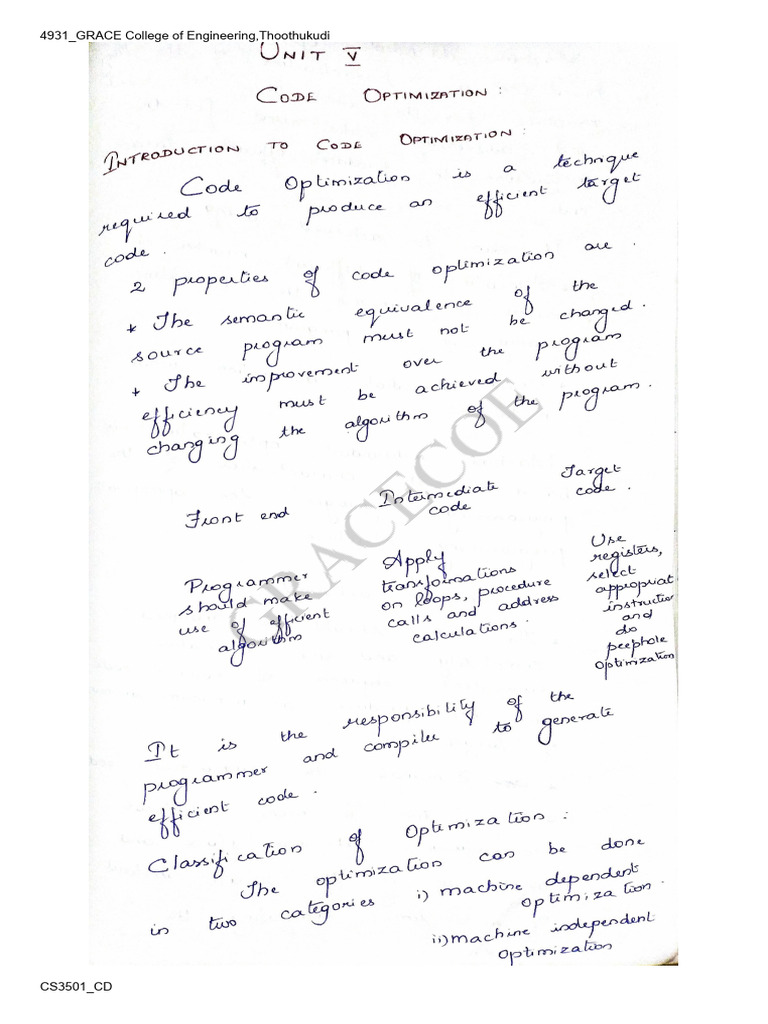 4931_GRACE College of Engineering,Thoothukudi
UNIT V
CODE OPTIMIZATION :
INTRODUCTION TO CODE OPTIMIZATION :
Code Optimization is a technque
required to produce an efficient target
code.
2 properties of code optimization are.
* The semantic equivalence of the
source program must not be changed.
* The improvement over the program
efficiency must be achieved without
changing the algorithm of the program.
Front end
Intermediate
code
Target
code.
Programmer
should make
use of efficient
algorithm
Apply
transformations
on loops, procedure
calls and address
calculations.
Use
registers,
select
appropriat
instructio
and
do
peephole
optimization
It is the responsibility of the
programmer and compiler to generate
efficient code.
Classification of Optimization :
The optimization can be done
in two categories i) machine dependent
optimization.
ii) machine independent
optimization
GRACECOE
CS3501_CD